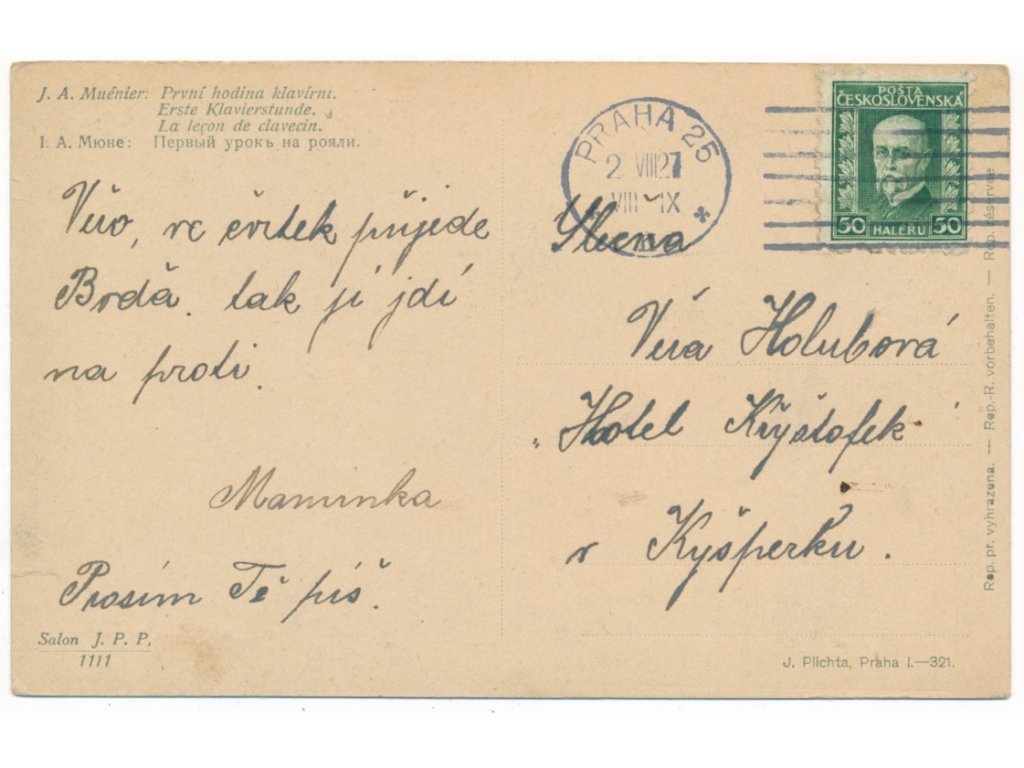 J. A. Muénier: První hodina klavírní.
Erste Klavierstunde.
La leçon de clavecin.
I. А. Мюне: Первый урокъ на рояли.
Věro, ve čtvrtek přijede
tak jí jdi
na proti.
Maminka
Prosím Tě piš.
Salon J. P. P.
1111
PRAHA 25
2 VIII 27
VIII-IX
*
POŠTA
ČESKOSLOVENSKÁ
50 HALÉŘŮ 50
Slečna
Věra Holubová
Hotel Kryštofek
v Kyšperku.
Rep. pr. vyhrazena. — Rep.-R. vorbehalten. — Rep. réservée
J. Plichta, Praha I.—321.